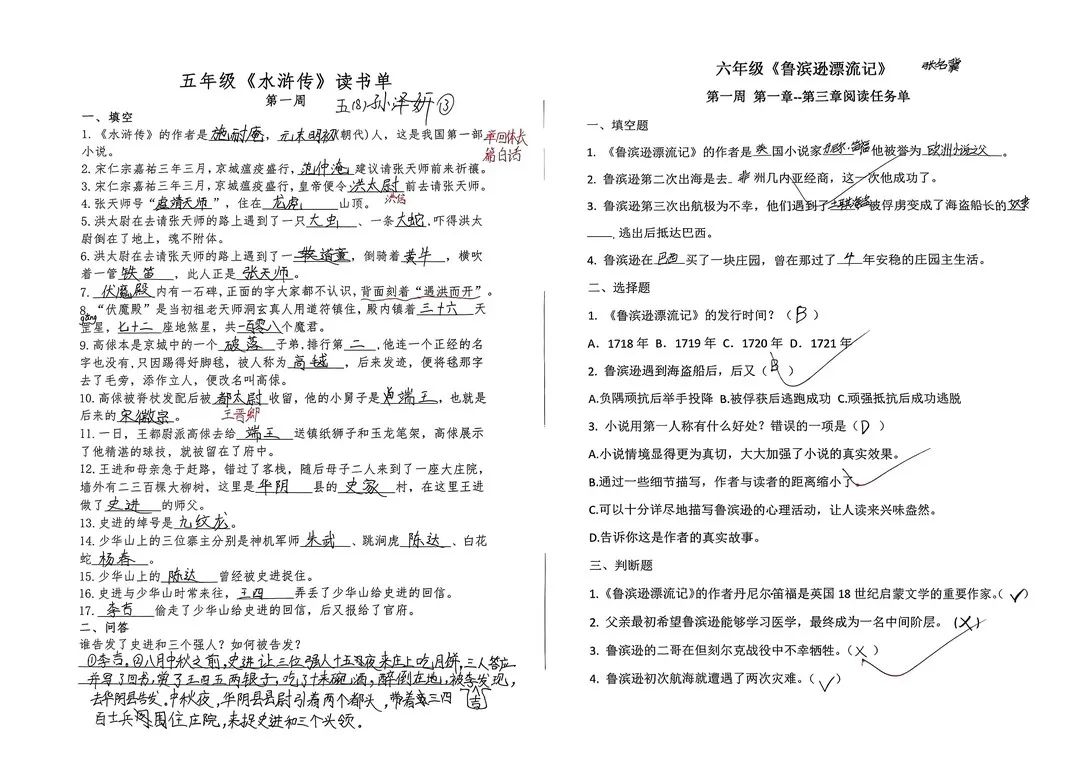 五年级《水浒传》读书单
第一周
五(8)孙泽妍 ⑬
一、填空
1.《水浒传》的作者是施耐庵，元末明初(朝代)人，这是我国第一部章回体长篇白话
小说。
2. 宋仁宗嘉祐三年三月，京城瘟疫盛行，范仲淹建议请张天师前来祈禳。
3. 宋仁宗嘉祐三年三月，京城瘟疫盛行，皇帝便令洪太尉前去请张天师。
洪信
4. 张天师号“虚靖天师”，住在龙虎山顶。
5. 洪太尉在去请张天师的路上遇到了一只大虫、一条大蛇，吓得洪太
尉倒在了地上，魂不附体。
6. 洪太尉在去请张天师的路上遇到了一道童，倒骑着黄牛，横吹
着一管铁笛，此人正是张天师。
7. 伏魔殿内有一石碑，正面的字大家都不认识，背面刻着“遇洪而开”。
8. “伏魔殿”是当初祖老天师洞玄真人用道符镇住，殿内镇着三十六天
gāng
罡星，七十二座地煞星，共一百零八个魔君。
9. 高俅本是京城中的一个破落子弟，排行第二，他连一个正经的名
字也没有，只因踢得好脚毬，被人称为高毬，后来发迹，便将毬那字
去了毛旁，添作立人，便改名叫高俅。
10. 高俅被脊杖发配后被都太尉收留，他的小舅子是端王，也就是
王晋卿
后来的宋徽宗。
11. 一日，王都尉派高俅去给端王送镇纸狮子和玉龙笔架，高俅展示
了他精湛的球技，就被留在了府中。
12. 王进和母亲急于赶路，错过了客栈，随后母子二人来到了一座大庄院，
墙外有二三百棵大柳树，这里是华阴县的史家村，在这里王进
做了史进的师父。
13. 史进的绰号是九纹龙。
14. 少华山上的三位寨主分别是神机军师朱武、跳涧虎陈达、白花
蛇杨春。
15. 少华山上的陈达曾经被史进捉住。
16. 史进与少华山时常来往，王四弄丢了少华山给史进的回信。
17. 李吉偷走了少华山给史进的回信，后又报给了官府。
二、问答
谁告发了史进和三个强人？如何被告发？
①李吉。②八月中秋之前，史进让三位强人十五夜来庄上吃月饼，三人答应
并写了回书，赏了王四五两银子，吃了十来碗酒，醉倒在地，被李发现，
吉
去华阴县告发。中秋夜，华阴县县尉引着两个都头，带着三四
百士兵围住庄院，来捉史进和三个头领。
六年级《鲁滨逊漂流记》
张名冀
第一周 第一章--第三章阅读任务单
一、填空题
1. 《鲁滨逊漂流记》的作者是英国小说家丹尼尔·笛福他被誉为欧洲小说之父。
2. 鲁滨逊第二次出海是去非洲几内亚经商，这一次他成功了。
3. 鲁滨逊第三次出航极为不幸，他们遇到了土耳其海盗被俘虏变成了海盗船长的奴隶
，逃出后抵达巴西。
4. 鲁滨逊在巴西买了一块庄园，曾在那过了4年安稳的庄园主生活。
二、选择题
1. 《鲁滨逊漂流记》的发行时间？（B）
A．1718年 B．1719年 C．1720年 D．1721年
2. 鲁滨逊遇到海盗船后，后又（B）
A.负隅顽抗后举手投降 B.被俘获后逃跑成功 C.顽强抵抗后成功逃脱
3. 小说用第一人称有什么好处？错误的一项是（D）
A.小说情境显得更为真切，大大加强了小说的真实效果。
B.通过一些细节描写，作者与读者的距离缩小了。
C.可以十分详尽地描写鲁滨逊的心理活动，让人读来兴味盎然。
D.告诉你这是作者的真实故事。
三、判断题
1.《鲁滨逊漂流记》的作者丹尼尔笛福是英国18世纪启蒙文学的重要作家。(✓)
2. 父亲最初希望鲁滨逊能够学习医学，最终成为一名中间阶层。（×）
3. 鲁滨逊的二哥在但刻尔克战役中不幸牺牲。（×）
4. 鲁滨逊初次航海就遭遇了两次灾难。（✓）